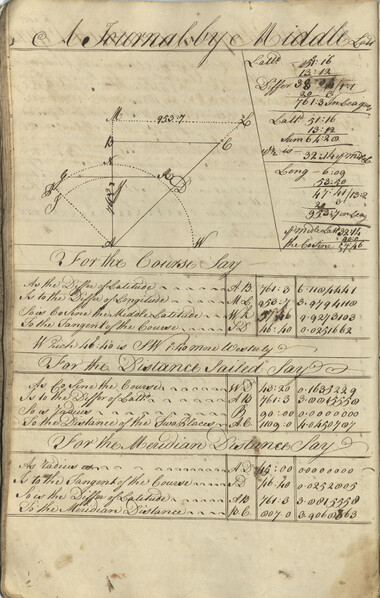 A Journal by Middle Latt
Latt:d 51:16
13:12
Differ 38
20
761:3 in Leagues
Latt:d 51:16
13:12
Sum 64:28
½ is 32:14 ye midd
Long 6:09
53:20
47:11
20
953:7 in Leag
ye midle Latt 32:14
90:0
the Co Sine 57:46
M 953:7 L
B C
N
G R D
A W
For the Course Say
As the Differ of Latitude A B 761:3
Is to the Differ of Longitude M L 953:7 3.9794118
So is Co Sine the Middle Latitude 57:46 9.9273103
To the Tangent of the Course 46:40 0.0251662
Which 46:40 is SW 1:40 more Westerly
For the Distance Sailed Say
As Co Sine the Course W D 43:20 0.1635229
Is to the Differ of Latt:d A B 761:3 3.8815558
So is Radius R 90:00 0.0000000
To the Distance of the Two Places A C 1109.0 4.0450787
For the Meridian Distance Say
As Radius A D 45:00 0000000
Is to the Tangent of the Course 46:40 0.0252805
So is the Differ of Latitude A B 761.3 3.8815558
To the Meridian Distance B C 807.0